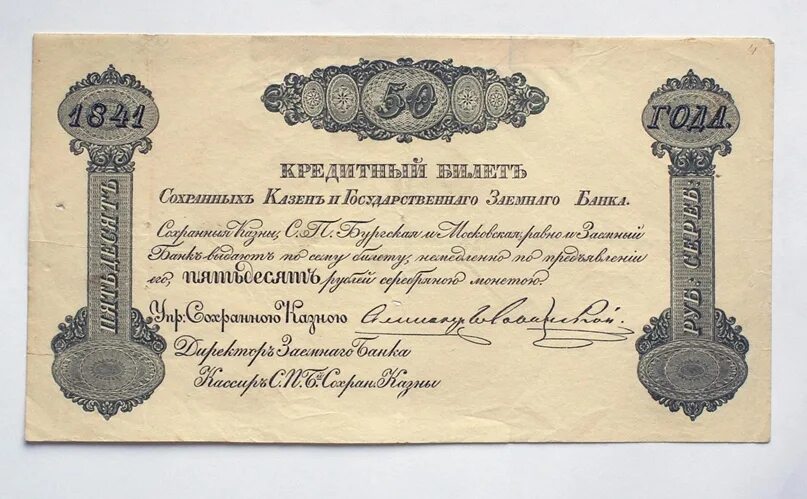 50
1841
ГОДА.
КРЕДИТНЫЙ БИЛЕТЪ
СОХРАННЫХЪ КАЗЕНЪ И ГОСУДАРСТВЕННАГО ЗАЕМНАГО БАНКА.
Сохранныя Казны, С. П. Бургская и Московская, равно и Заемный
Банкъ выдаютъ по сему билету, немедленно по предъявленіи
его, пятьдесятъ рублей серебряною монетою.
Упр: Сохранною Казною
Директоръ Заемнаго Банка
Кассиръ С. П. Б. Сохран. Казны
ПЯТЬДЕСЯТЪ
РУБ: СЕРЕБ: